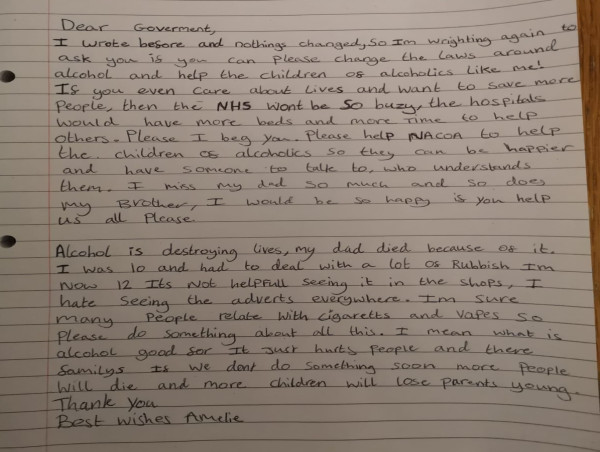 Dear Goverment,
I wrote before and nothings changed, so Im wrighting again to
ask you is you can please change the laws around
alcohol and help the children of alcoholics like me!
If you even care about lives and want to save more
People, then the NHS wont be so buzy, the hospitals
would have more beds and more time to help
others. Please I beg you. Please help NACOA to help
the children of alcoholics so they can be happier
and have someone to talk to, who understands
them. I miss my dad so much and so does
my Brother, I would be so happy if you help
us all Please.
Alcohol is destroying lives, my dad died because of it.
I was 10 and had to deal with a lot of Rubbish Im
Now 12 Its Not helpfull seeing it in the shops, I
hate seeing the adverts everywhere. Im sure
many People relate with cigaretts and vapes so
Please do something about all this. I mean what is
alcohol good for It Just hurts people and there
familys If we dont do something soon more people
will die and more children will lose parents young.
Thank you
Best wishes Amelie